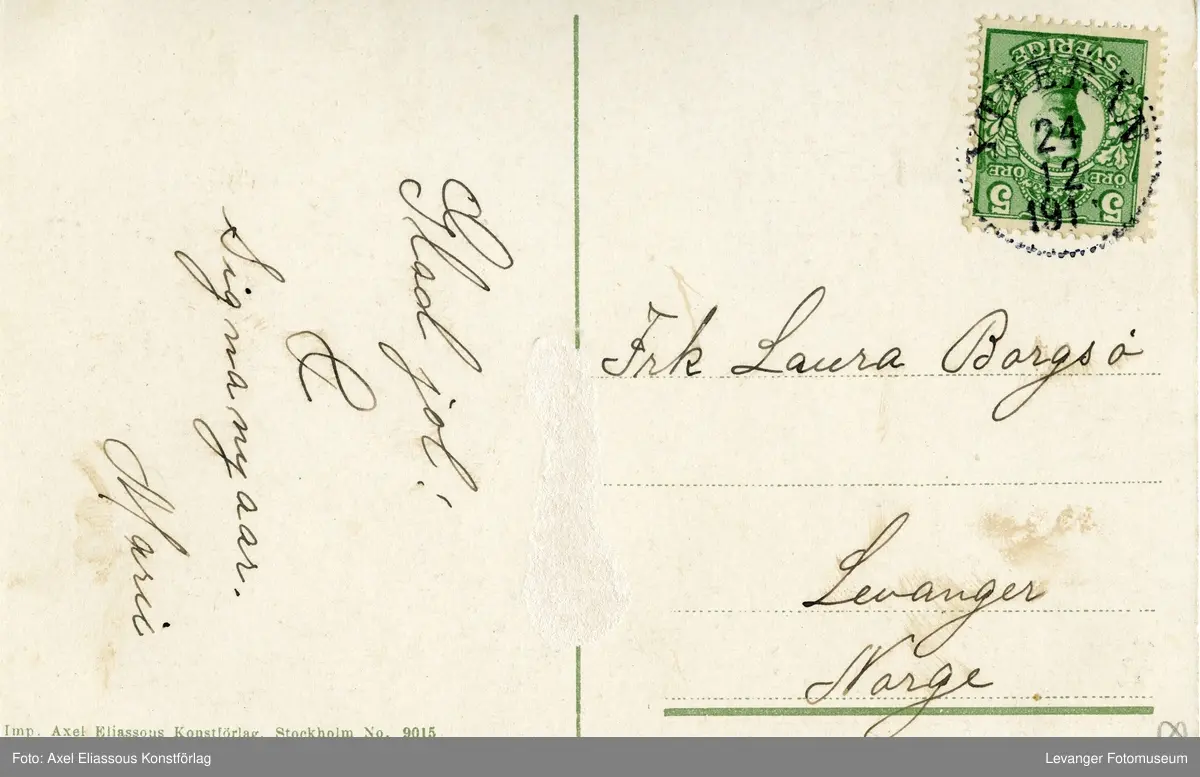 Glad jol!
&
Signa nyaar.
Marii
SVERIGE
24
12
191
5 ÖRE ÖRE 5
Frk Laura Borgsö
Levanger
Norge
Imp. Axel Eliassons Konstförlag, Stockholm No. 9015
Foto: Axel Eliassous Konstförlag
Levanger Fotomuseum